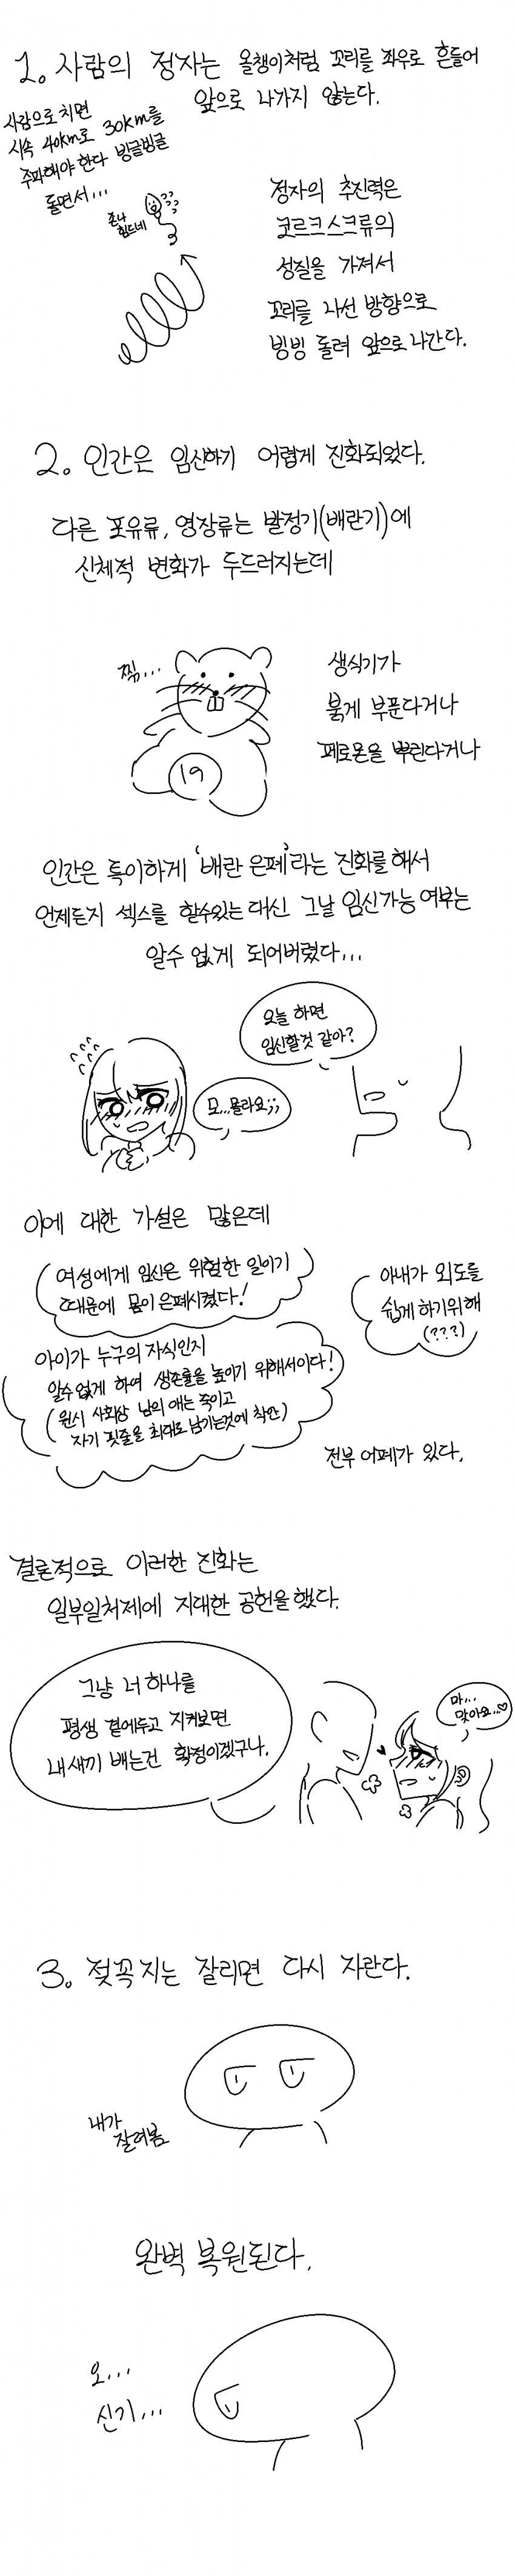 1. 사람의 정자는 올챙이처럼 꼬리를 좌우로 흔들어
앞으로 나가지 않는다.
사람으로 치면
시속 40km로 30km를
주파해야 한다 빙글빙글
돌면서...
존나
힘드네
???
정자의 추진력은
코르크스크류의
성질을 가져서
꼬리를 나선 방향으로
빙빙 돌려 앞으로 나간다.
2. 인간은 임신하기 어렵게 진화되었다.
다른 포유류, 영장류는 발정기(배란기)에
신체적 변화가 두드러지는데
찍...
19
생식기가
붉게 부푼다거나
페로몬을 뿌린다거나
인간은 특이하게 '배란 은폐'라는 진화를 해서
언제든지 섹스를 할수있는 대신 그날 임신가능 여부는
알수 없게 되어버렸다...
오늘 하면
임신할것 같아?
모...몰라요;;
이에 대한 가설은 많은데
여성에게 임신은 위험한 일이기
때문에 몸이 은폐시켰다!
아내가 외도를
쉽게 하기위해
(???)
아이가 누구의 자식인지
알수 없게 하여 생존률을 높이기 위해서이다!
(원시 사회상 남의 애는 죽이고
자기 핏줄을 최대로 남기는것에 착안)
전부 어폐가 있다.
결론적으로 이러한 진화는
일부일처제에 지대한 공헌을 했다.
그냥 너 하나를
평생 곁에두고 지켜보면
내새끼 배는건 확정이겠구나.
마...
맞아요...♡
3. 젖꼭지는 잘리면 다시 자란다.
내가
잘려봄
완벽 복원된다.
오...
신기...